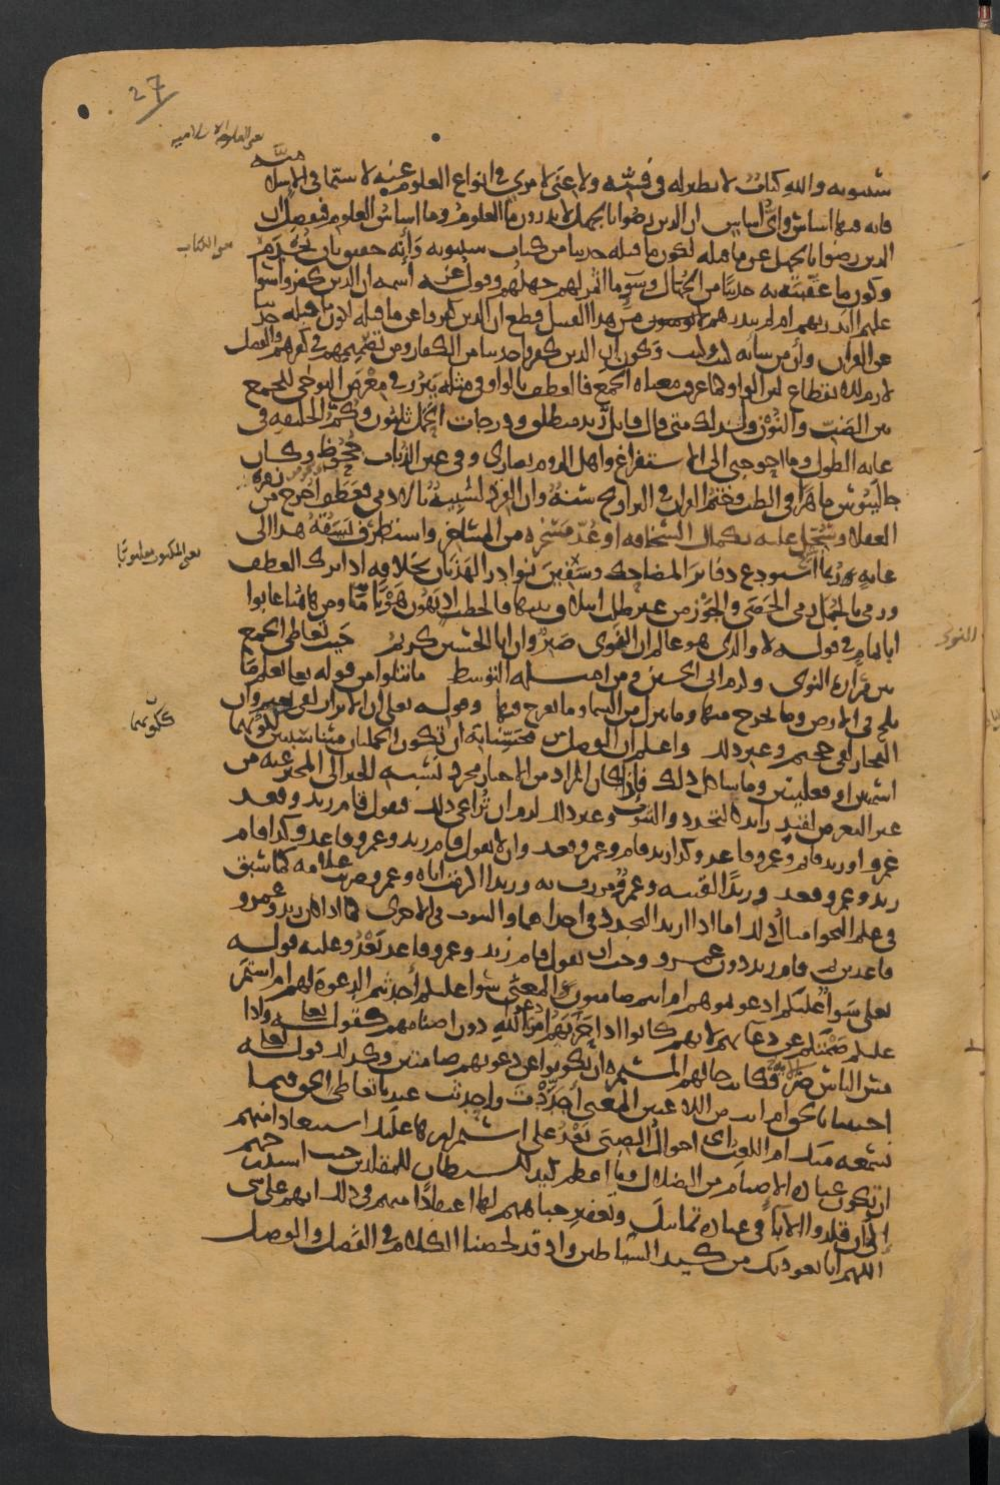 27
سيبويه والله كتاب لا نظير له في فنه ولا غنى لامرئ في انواع العلوم عنه لا سيما في الاسلامية
فانه فيها اساس واي اساس ان الذين رضوا بالجهل لا يدرون ما العلوم وما اساس العلوم فيفصل ان
الذين رضوا بالجهل عن ما قبله لكون ما قبله حديثا عن كتاب سيبويه وانه حقيق بان يخدم
وكون ما عقبته به حديثا عن الجهال وسوء ما اثر لهم جهلهم وقوله عز اسمه ان الذين كفروا سواء
عليهم أأنذرتهم ام لم تنذرهم لا يؤمنون من هذا القبيل قطع ان الذين كفروا عن ما قبله لكون ما قبله حديثا
عن القرآن وان من شأنه كيت وكيت وكون ان الذين كفروا حديثا عن الكفار وعن تصميمهم في كفرهم والفصل
لازم للانقطاع لان الواو كما عرف معناه الجمع فالعطف بالواو في مثله يبرز في معرض التوخي للجمع
بين الضب والنون ولذلك متى قال قائل زيد منطلق ودرجات الحمل ثلثون وكم الخليفة في
غاية الطول وما احوجني الى الاستفراغ واهل الروم نصارى وفي عين الذباب جحوظ وكان
جالينوس ماهرا في الطب وختم القران في التراويح سنة وان القرد لشبيه بالادمي فعطف اخرج من زمرة
العقلا وسجل عليه بكمال السخافة او عد مسخرة من المساخر واستطرف نسقه هذا الى
غاية ربما استودع دفاتر المضاحك وسفين نوادر الهذيان بخلافه اذا ترك العطف
ورمى بالجمل رمي الحصى والجوز من غير طلب ائتلاف بينها فالخطب اذ يهون هونا ما ومن هاهنا عابوا
ابا تمام في قوله لا والذي هو عالم ان النوى صبر وان ابا الحسين كريم حيث تعاطى الجمع
بين مرارة النوى وكرم ابي الحسين
يلج في الارض وما يخرج منها وما ينزل من السما وما يعرج فيها وقوله تعلى ان الابرار لفي نعيم وان
الفجار لفي جحيم وغير ذلك واعلم ان الوصل من محسناته ان تكون الجملتان متناسبتين ككونهما
اسميتين او فعليتين وما شاكل ذلك فاذا كان المراد من الاخبار مجرد نسبة الخبر الى المخبر عنه من
غير التعرض لقيد زايد كالتجدد والثبوت وغير ذلك لزم ان تراعي ذلك فتقول قام زيد وقعد
عمرو او زيد قائم وعمرو قاعد وكذا زيد قام وعمرو قعد وان لا تقول قام زيد وعمرو قاعد وكذا قام
زيد وعمرو قعد وزيدا لقيته وعمرو مررت به وزيدا اكرمت اباه وعمرو ضربت غلامه كما سبق
في علم النحو امثال ذلك اما اذا اريد التجدد في احداهما والثبوت في الاخرى كما اذا كان زيد وعمرو
قاعدين ثم قام زيد دون عمرو وجب ان تقول قام زيد وعمرو قاعد بعد وعليه قوله
تعلى سواء عليكم ادعوتموهم ام انتم صامتون المعنى سواء عليكم احدثتم الدعوة لهم ام استمر
عليكم صمتكم عن دعائهم لانهم كانوا اذا حزبهم امر دعوا الله دون اصنامهم كقوله تعالى واذا
مس الناس ضر فكانت حالهم المستمرة ان يكونوا عن دعوتهم صامتين وكذلك قوله تعالى
اجئتنا بالحق ام انت من اللاعبين المعنى اجددت واحدثت عندنا تعاطي الحق فيما
نسمعه منك ام اللعب اي احوال الصبي بعد على استمرارها عليك استبعادا منهم
ان تكون عبادة الاصنام من الضلال وما اعظم كيد الشيطان للمقلدين حيث استدرجهم
الى ان قلدوا الابا في عبادة تماثيل وتعفير جباههم لها اعتقادا منهم في ذلك انهم على شي
اللهم انا نعوذ بك من كيد الشياطين واذ قد لخصنا الكلام في الفصل والوصل
عن العلوم الاسلامية
عن الكتاب
ككونهما
النوى